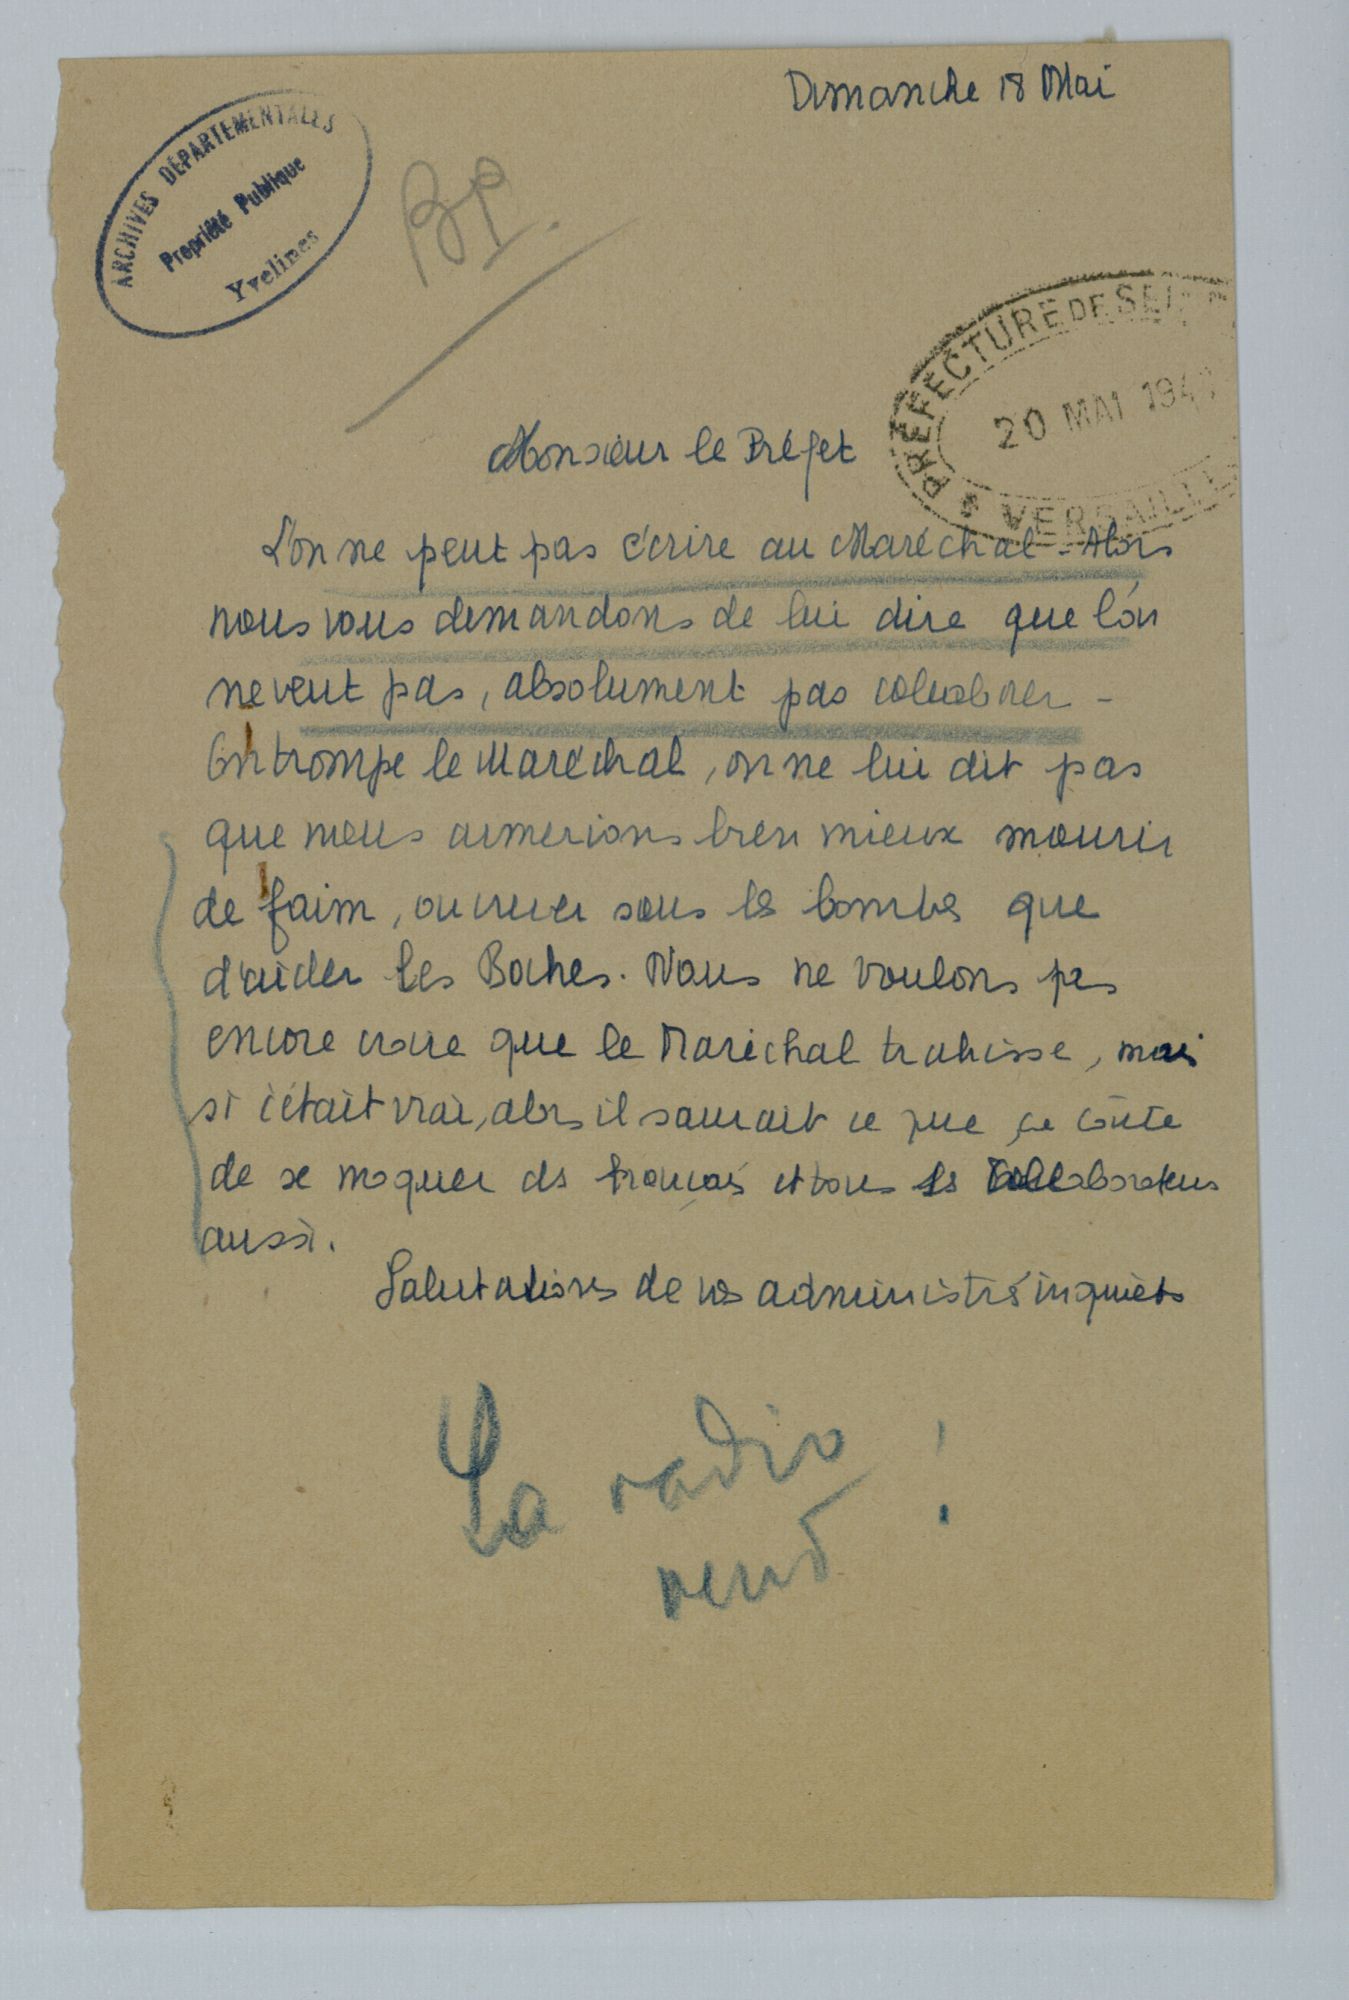 Dimanche 18 Mai
ARCHIVES DÉPARTEMENTALES
Propriété Publique
Yvelines
BP.
PRÉFECTURE DE SEINE
20 MAI 194
VERSAILLES
Monsieur le Préfet
L'on ne peut pas écrire au Maréchal - Alors
nous vous demandons de lui dire que l'on
ne veut pas, absolument pas collaborer -
On trompe le Maréchal, on ne lui dit pas
que nous aimerions bien mieux mourir
de faim, ou crever sous les bombes que
d'aider les Boches. Nous ne voulons pas
encore croire que le Maréchal trahisse, mais
si c'était vrai, alors il saurait ce que ça coûte
de se moquer des français et tous les Collaborateurs
aussi.
Salutations de vos administrés inquiets
La radio !
rend